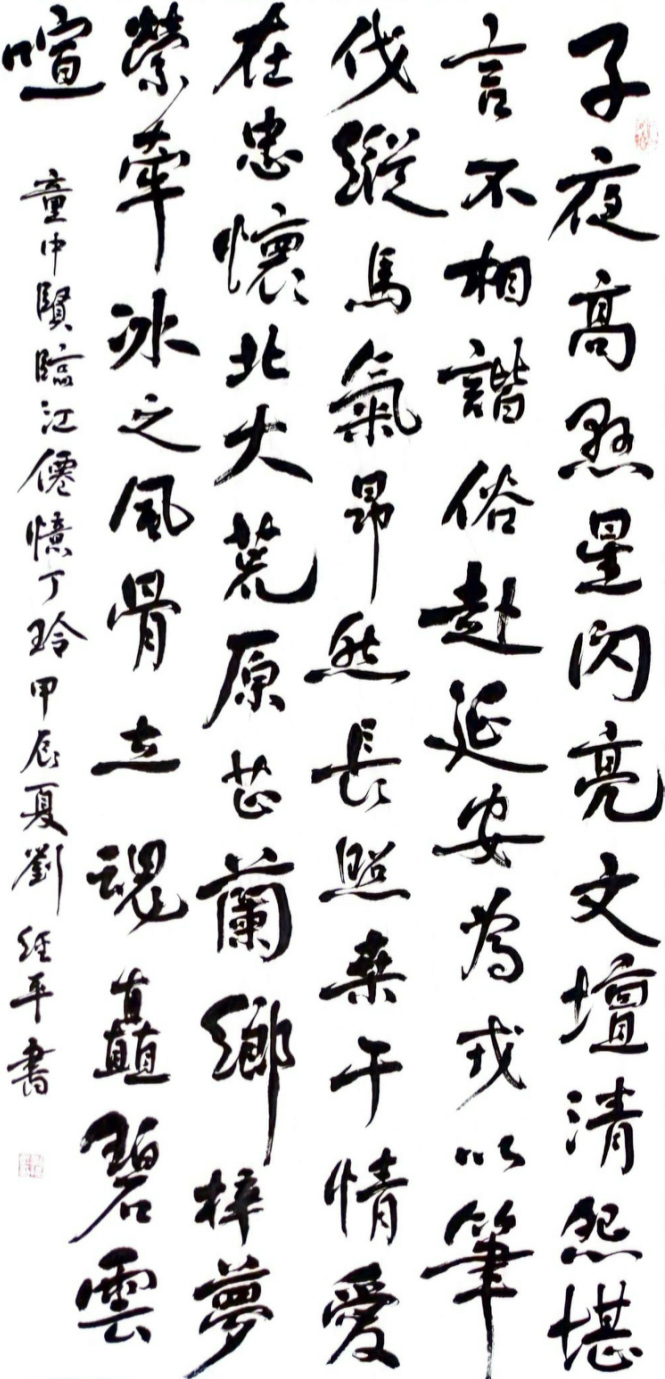 子夜高懸星閃亮文壇清怨堪
言不相諧俗赴延安為戎以筆
伐縱馬氣昂然長照桑干情愛
在忠懷北大荒原芷蘭鄉梓夢
縈牽冰之風骨立魂矗碧雲
喧
童中賢臨江僊憶丁玲甲辰夏劉經平書